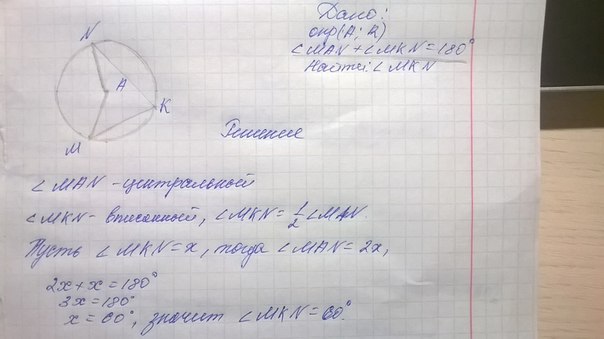 Дано:
окр(А; R)
∠MAN + ∠MKN = 180°
Найти: ∠MKN
N
A
K
M
Решение
∠MAN - центральной
∠MKN - вписанной, ∠MKN = 1/2 ∠MAN.
Пусть ∠MKN = x, тогда ∠MAN = 2x,
2x + x = 180°
3x = 180°
x = 60°, значит ∠MKN = 60°.